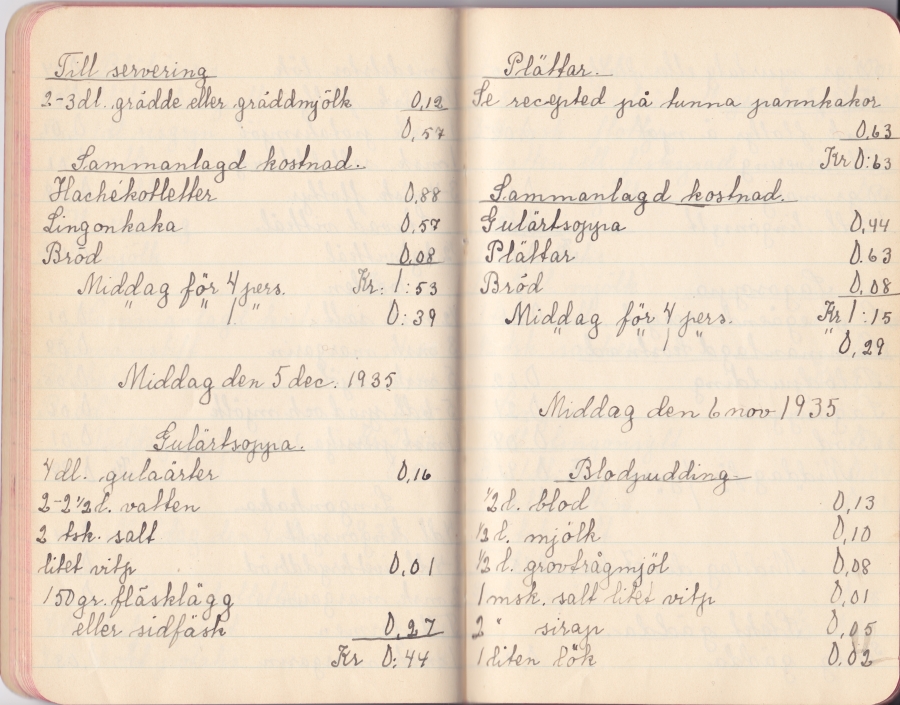 Till servering
2-3dl. grädde eller gräddmjölk 0,12
0,57
Sammanlagd kostnad.
Hachékotletter 0,88
Lingonkaka 0,57
Bröd 0,08
Middag för 4 pers. Kr: 1:53
" " 1 " 0:39
Middag den 5 dec. 1935
Gulärtsoppa.
4 dl. gulaärter 0,16
2-2 1/2 l. vatten
2 tsk. salt
litet vitp 0,01
150 gr. fläsklägg
eller sidfäsk 0,27
Kr 0:44
Plättar.
Se recepted på tunna pannkakor
0,63
Kr 0:63
Sammanlagd kostnad.
Gulärtsoppa 0,44
Plättar 0.63
Bröd 0,08
Middag för 4 pers. Kr 1:15
" " 1 " " 0,29
Middag den 6 nov 1935
Blodpudding
1/2 l. blod 0,13
1/2 l. mjölk 0,10
1/2 l. grovtrågmjöl 0,08
1 msk. salt litet vitp 0,01
2 " sirap 0,05
1 liten lök 0,02